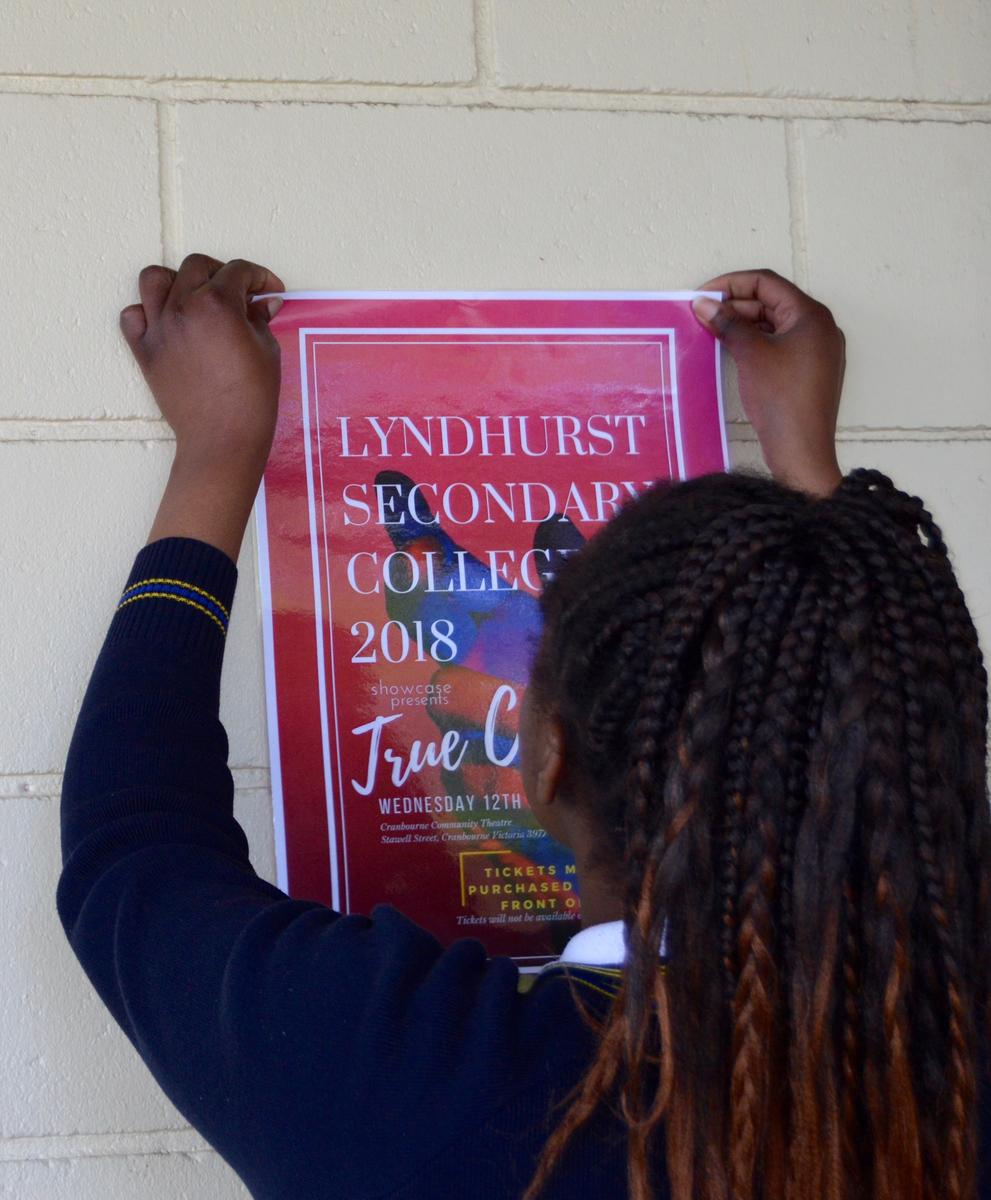 LYNDHURST
SECONDARY
COLLEGE
2018
showcase
presents
True
WEDNESDAY 12TH
Cranbourne Community Theatre
Stawell Street, Cranbourne Victoria 3977
TICKETS
PURCHASED
FRONT
Tickets will not be available